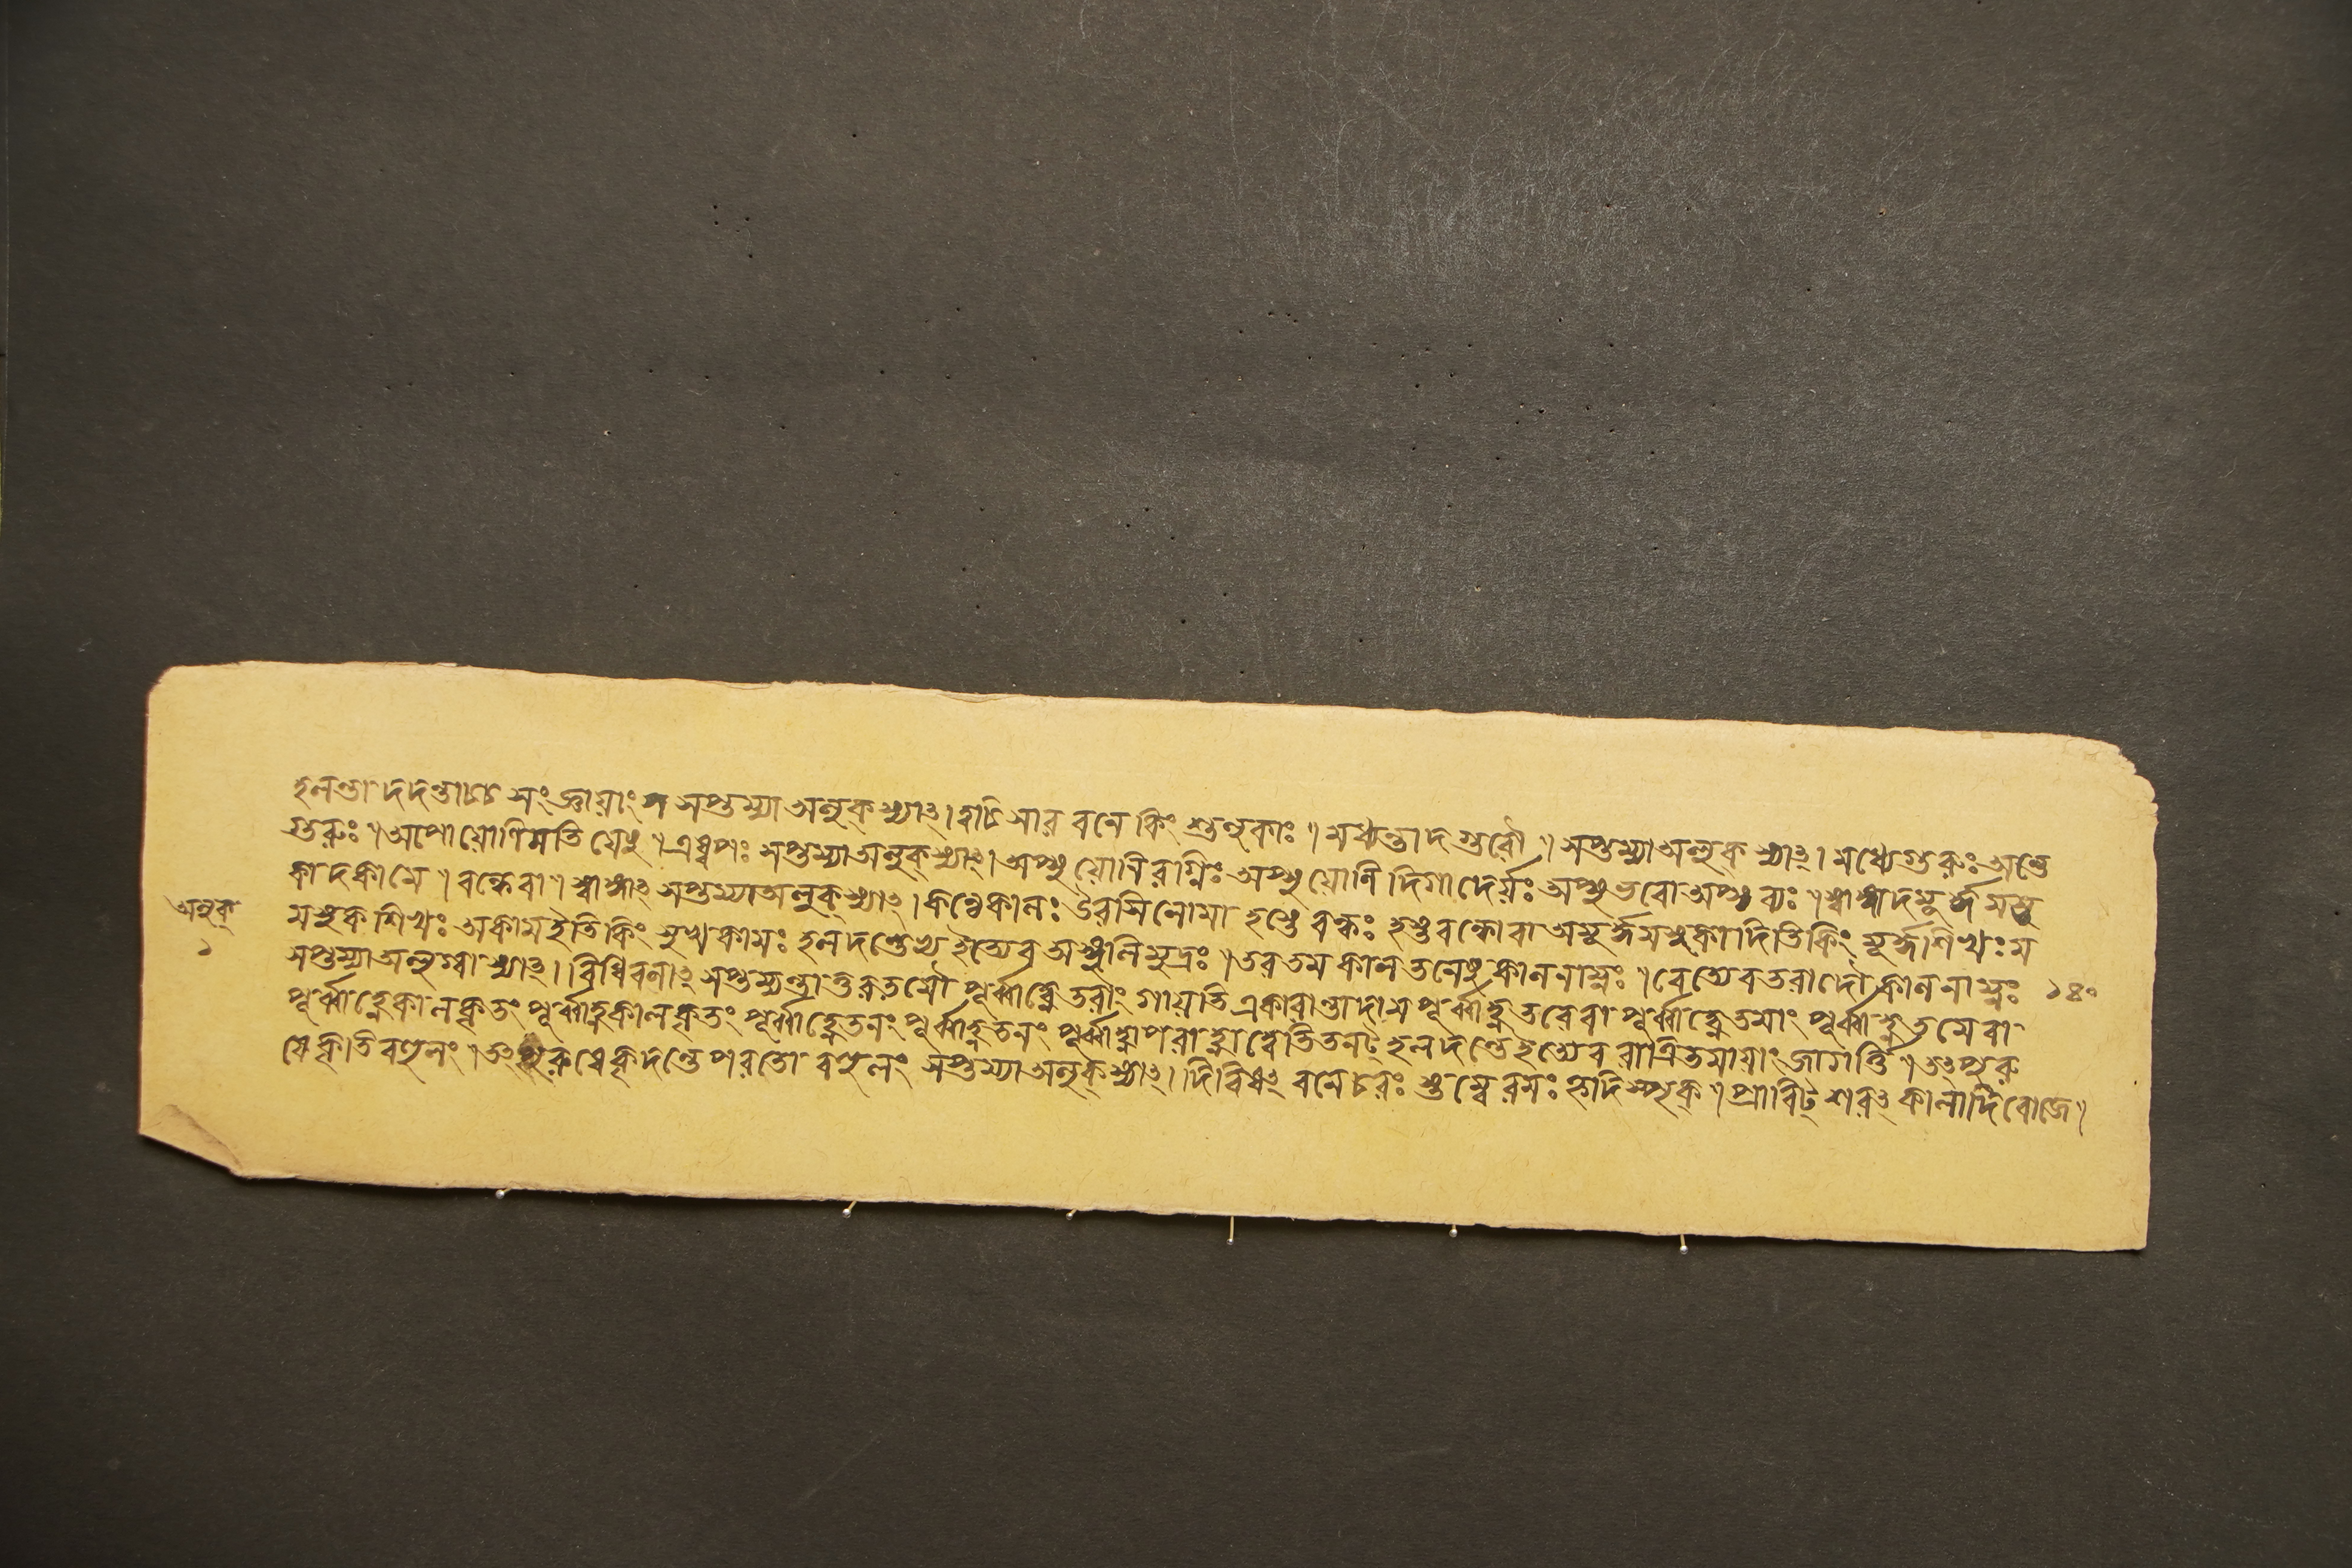 হলন্তাদদন্তাচ্চ সংজ্ঞায়াং সপ্তম্যা অলুক্ স্যাৎ। হ্রাচি সার বনে কিং শুলুকাঃ॥ মধ্যন্তাদ গুরৌ॥ সপ্তম্যা অলুক্ স্যাৎ। মধ্যেগুরুঃ অন্তে
গুরুঃ॥ অপো যোনিমতি যেষু॥ এষ্বপঃ সপ্তম্যা অলুক্ স্যাৎ। অপ্সু যোনিরগ্নিঃ অপ্সু যোনি দিগাদের্য্যঃ অপ্সুভবো অপ্সব্যঃ॥ স্বাঙ্গাদমূর্দ্ধমস্ত
কাদকামে॥ বন্ধেবা॥ স্বাঙ্গাৎ সপ্তম্যা অলুক্ স্যাৎ। কণ্ঠেকালঃ উরসিলোমা হস্তে বন্ধঃ হস্তবন্ধোবা অমূর্দ্ধমস্তকাদিতিকিং মূর্দ্ধশিখঃ ম
অলুক্
মস্তকশিখঃ অকামইতিকিং মুখকামঃ হলদন্তেত্যেব অঙ্গুলিমুদ্রঃ॥ তরতম কাল তনেষু কালনাম্নঃ॥ বেত্যেব তরাদৌ কালনাম্নঃ ১৪০
১
সপ্তম্যা অলুগ্বা স্যাৎ। বিধিবলাৎ সপ্তম্যন্তাত্তরতমৌ পূর্ব্বাহ্ণেতরাং গায়তি একারান্তাদাম পূর্ব্বাহ্ণতরেবা পূর্ব্বাহ্ণেতমাং পূর্ব্বাহ্ণতমেবা
পূর্ব্বাহ্ণেকালকৃতং পূর্ব্বাহ্ণকালকৃতং পূর্ব্বাহ্ণেতনং পূর্ব্বাহ্ণতনং পূর্ব্বাহ্ণাপরাহ্ণাদ্বেতিতনট্ হলদন্তেত্যেব রাত্রিতমায়াং জাগর্ত্তি॥ তৎপুরু
ষেকৃতিবহুলং॥ তৎপুরুষেকৃদন্তে পরতো বহুলং সপ্তম্যা অলুক্ স্যাৎ। দিবিষৎ বনেচরঃ স্তম্বেরমঃ হৃদিস্পৃক্॥ প্রাবিট্ শরৎ কালাদিবোজে॥